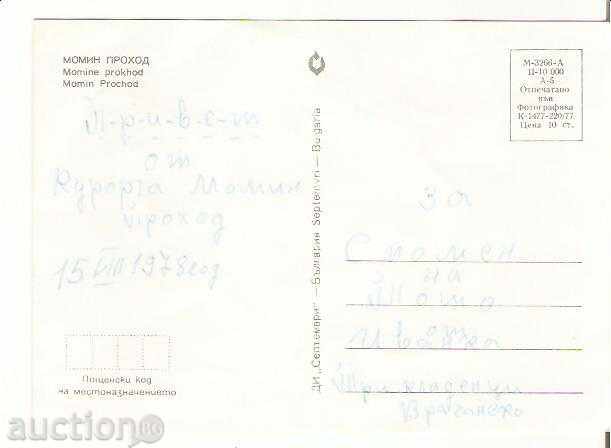 МОМИН ПРОХОД
Momine prokhod
Momin Prochod
П-р-и-в-е-т
от
Курорта Момин
проход
15 VIII 1978 год
Пощенски код
на местоназначението
ДИ „Септември" — България Septemvri — Bulgaria
М-3266-А
II-10 000
А-5
Отпечатано
във
Фотографика
К-1477-220/77.
Цена 10 ст.
За
Спомен
на
от
Иванка
Три кладенци
Врачанско
auction.bg